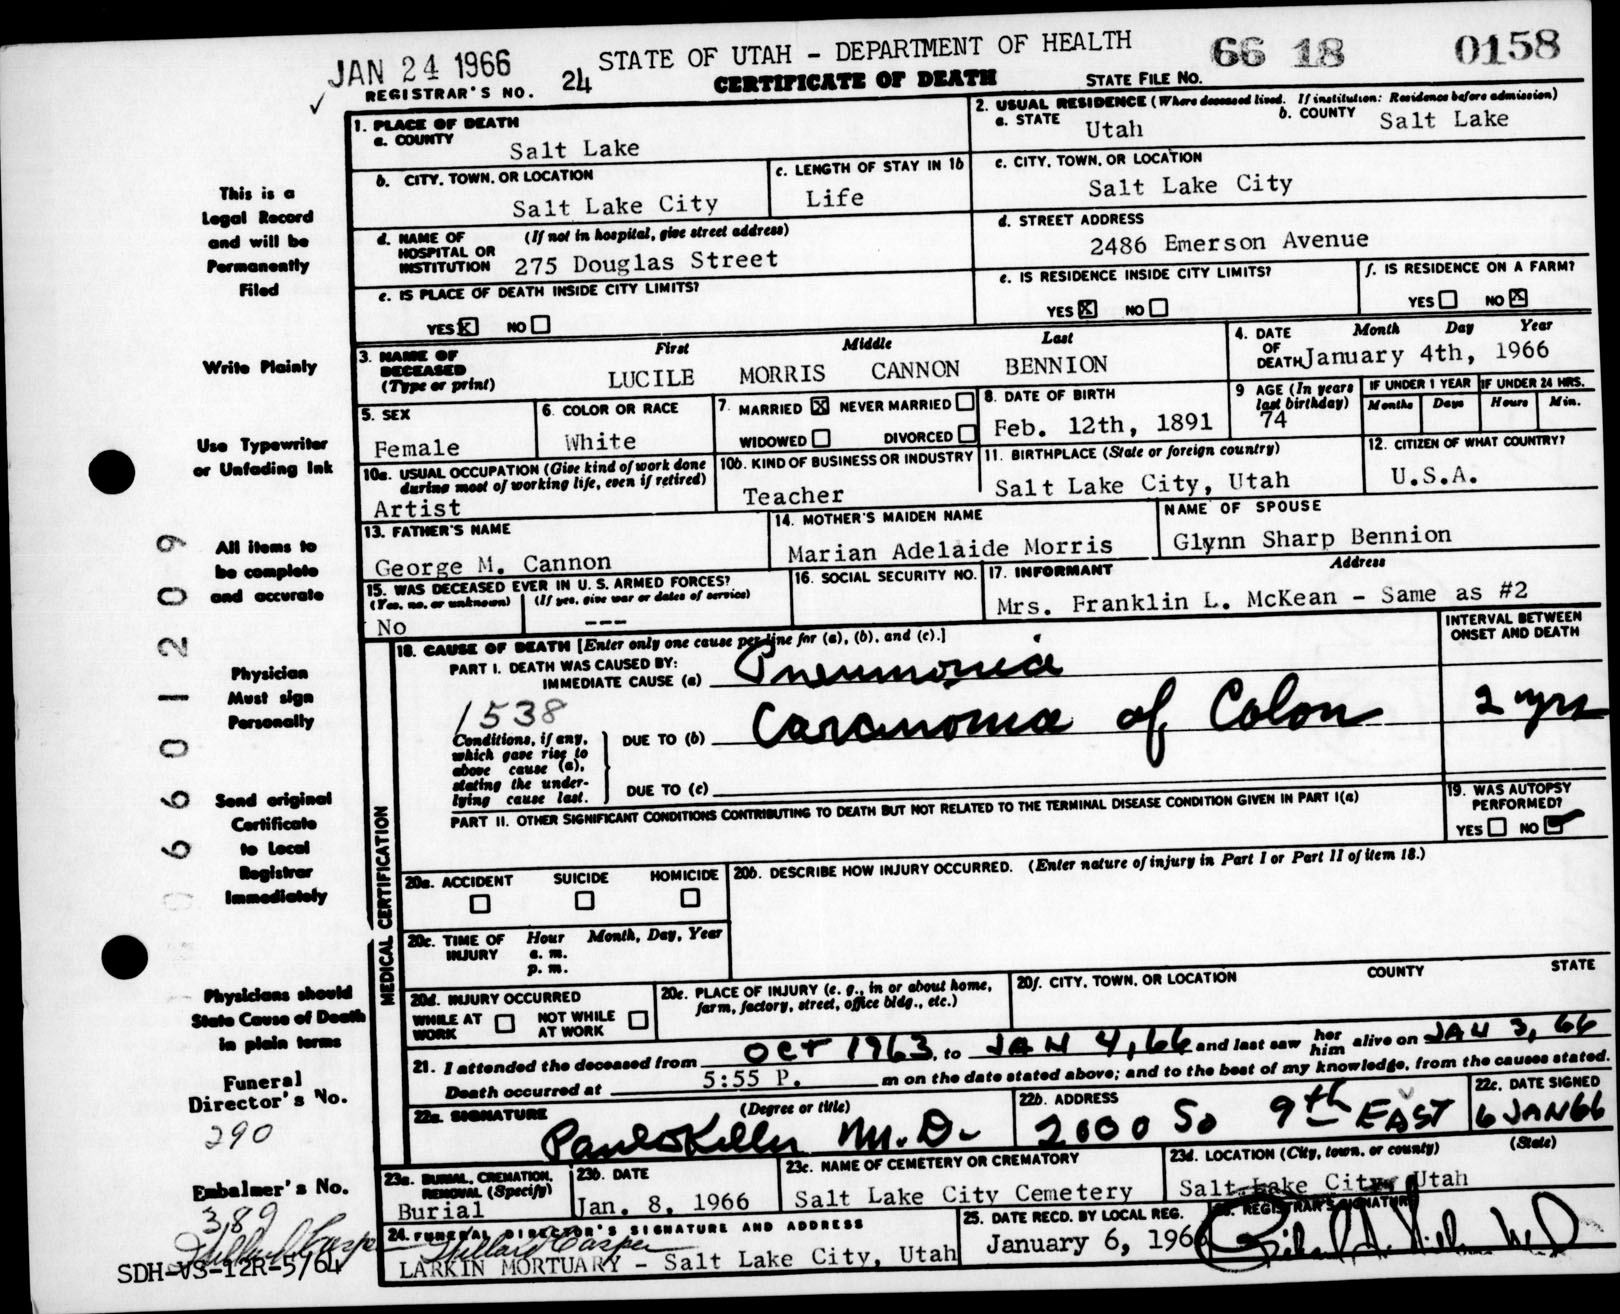 JAN 24 1966
STATE OF UTAH - DEPARTMENT OF HEALTH
66 18 0158
REGISTRAR'S NO. 24
CERTIFICATE OF DEATH
STATE FILE NO.
1. PLACE OF DEATH
a. COUNTY
Salt Lake
2. USUAL RESIDENCE (Where deceased lived. If institution: Residence before admission)
a. STATE Utah
b. COUNTY Salt Lake
b. CITY, TOWN, OR LOCATION
Salt Lake City
c. LENGTH OF STAY IN 1b
Life
c. CITY, TOWN, OR LOCATION
Salt Lake City
d. NAME OF HOSPITAL OR INSTITUTION (If not in hospital, give street address)
275 Douglas Street
d. STREET ADDRESS
2486 Emerson Avenue
e. IS PLACE OF DEATH INSIDE CITY LIMITS?
YES X NO
e. IS RESIDENCE INSIDE CITY LIMITS?
YES X NO
f. IS RESIDENCE ON A FARM?
YES NO X
3. NAME OF DECEASED (Type or print)
First Middle Last
LUCILE MORRIS CANNON BENNION
4. DATE OF DEATH
Month Day Year
January 4th, 1966
5. SEX
Female
6. COLOR OR RACE
White
7. MARRIED X NEVER MARRIED
WIDOWED DIVORCED
8. DATE OF BIRTH
Feb. 12th, 1891
9 AGE (In years last birthday)
74
IF UNDER 1 YEAR
Months Days
IF UNDER 24 HRS.
Hours Min.
10a. USUAL OCCUPATION (Give kind of work done during most of working life, even if retired)
Artist
10b. KIND OF BUSINESS OR INDUSTRY
Teacher
11. BIRTHPLACE (State or foreign country)
Salt Lake City, Utah
12. CITIZEN OF WHAT COUNTRY?
U.S.A.
13. FATHER'S NAME
George M. Cannon
14. MOTHER'S MAIDEN NAME
Marian Adelaide Morris
NAME OF SPOUSE
Glynn Sharp Bennion
15. WAS DECEASED EVER IN U. S. ARMED FORCES?
(Yes, no, or unknown) (If yes, give war or dates of service)
No ---
16. SOCIAL SECURITY NO.
17. INFORMANT Address
Mrs. Franklin L. McKean - Same as #2
18. CAUSE OF DEATH [Enter only one cause per line for (a), (b), and (c).]
INTERVAL BETWEEN ONSET AND DEATH
PART I. DEATH WAS CAUSED BY:
IMMEDIATE CAUSE (a) Pneumonia
1538
Conditions, if any, which gave rise to above cause (a), stating the underlying cause last.
DUE TO (b) Carcinoma of Colon 2 yrs
DUE TO (c)
PART II. OTHER SIGNIFICANT CONDITIONS CONTRIBUTING TO DEATH BUT NOT RELATED TO THE TERMINAL DISEASE CONDITION GIVEN IN PART I(a)
19. WAS AUTOPSY PERFORMED?
YES NO
MEDICAL CERTIFICATION
20a. ACCIDENT SUICIDE HOMICIDE
20b. DESCRIBE HOW INJURY OCCURRED. (Enter nature of injury in Part I or Part II of item 18.)
20c. TIME OF INJURY
Hour Month, Day, Year
a. m.
p. m.
20d. INJURY OCCURRED
WHILE AT WORK NOT WHILE AT WORK
20e. PLACE OF INJURY (e. g., in or about home, farm, factory, street, office bldg., etc.)
20f. CITY, TOWN, OR LOCATION COUNTY STATE
21. I attended the deceased from OCT 1963, to JAN 4, 66 and last saw her him alive on JAN 3, 66
Death occurred at 5:55 P. m on the date stated above; and to the best of my knowledge, from the causes stated.
22a. SIGNATURE (Degree or title)
Paul Keller M.D.
22b. ADDRESS
2000 So 9th EAST
22c. DATE SIGNED
6 JAN 66
23a. BURIAL, CREMATION, REMOVAL (Specify)
Burial
23b. DATE
Jan. 8, 1966
23c. NAME OF CEMETERY OR CREMATORY
Salt Lake City Cemetery
23d. LOCATION (City, town, or county) (State)
Salt Lake City, Utah
24. FUNERAL DIRECTOR'S SIGNATURE AND ADDRESS
LARKIN MORTUARY - Salt Lake City, Utah
25. DATE RECD. BY LOCAL REG.
January 6, 1966
26. REGISTRAR'S SIGNATURE
This is a
Legal Record
and will be
Permanently
Filed
Write Plainly
Use Typewriter
or Unfading Ink
All items to
be complete
and accurate
Physician
Must sign
Personally
Send original
Certificate
to Local
Registrar
Immediately
Physicians should
State Cause of Death
in plain terms
Funeral
Director's No.
290
Embalmer's No.
389
SDH-VS-12R-5/64
6 6 0 1 2 0 9